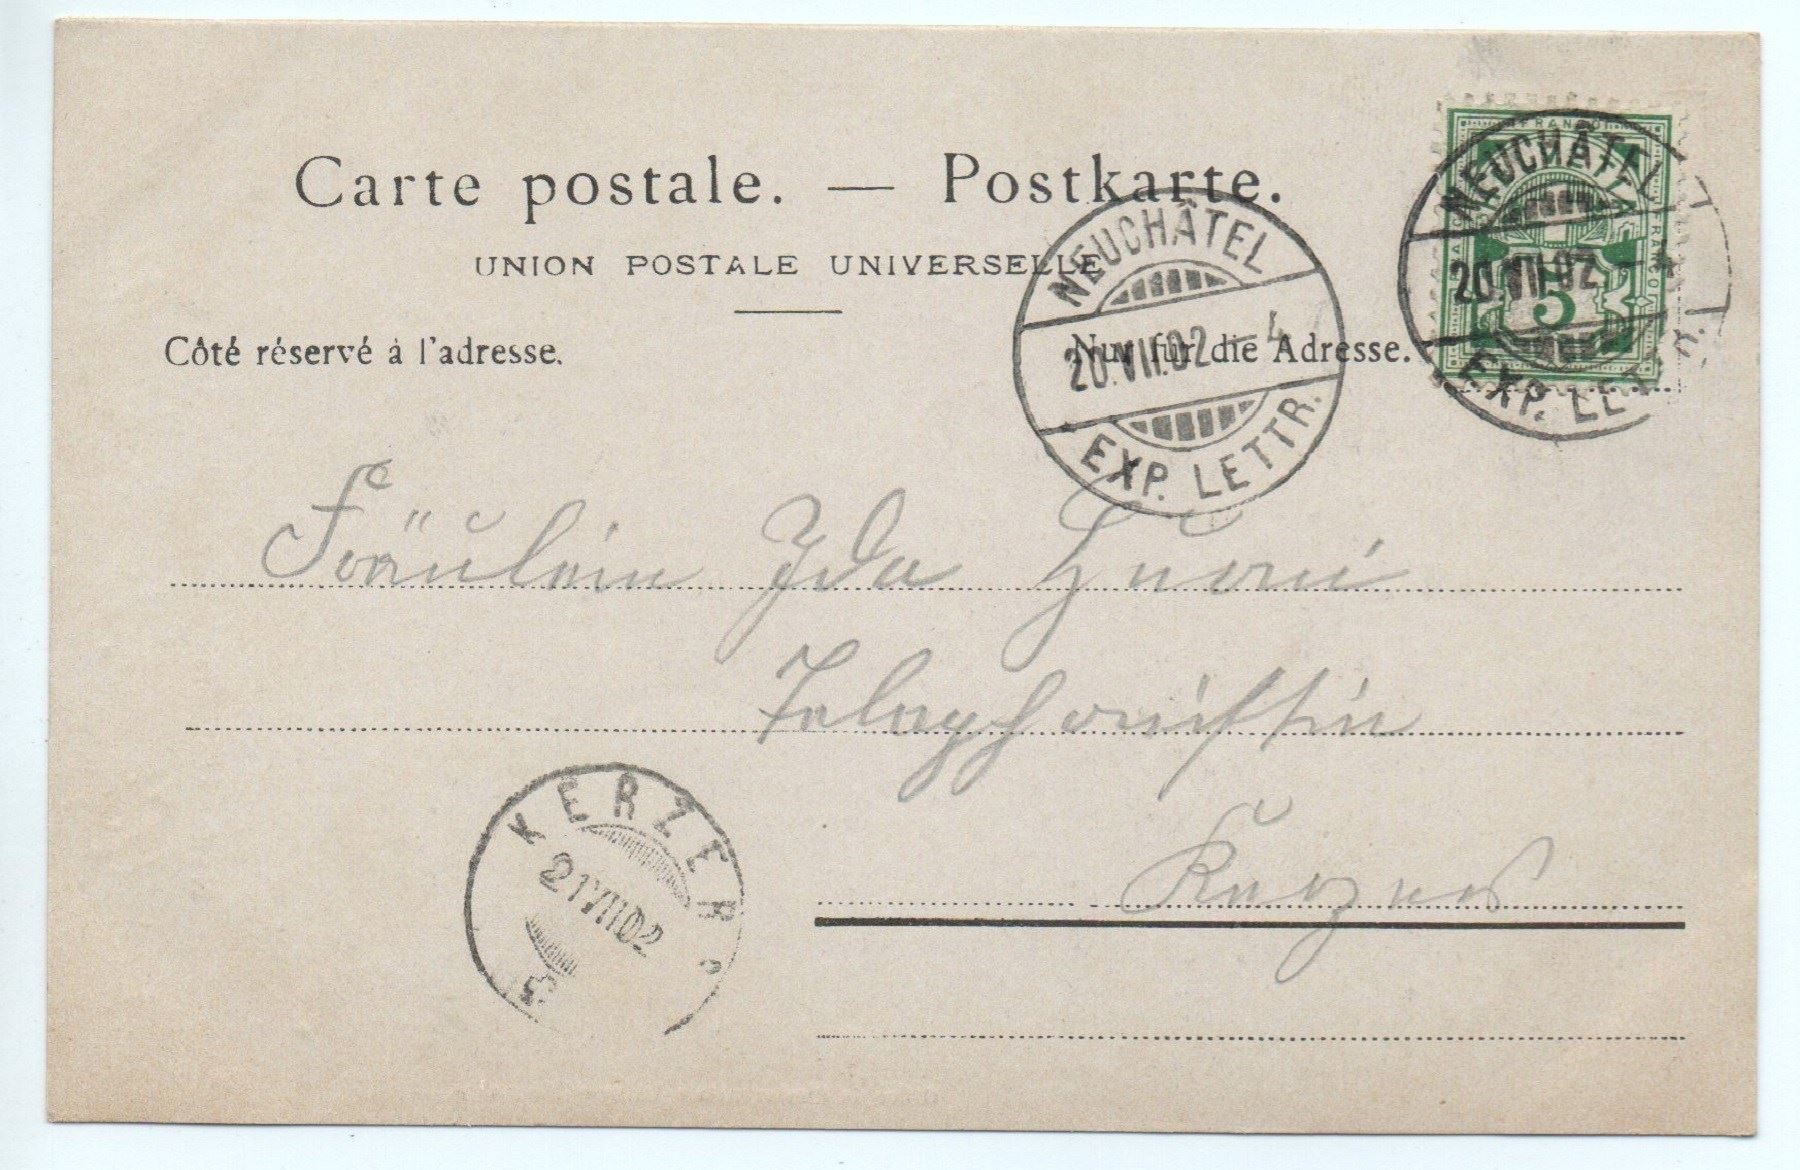 Carte postale. — Postkarte.
UNION POSTALE UNIVERSELLE
Côté réservé à l'adresse.
Nur für die Adresse.
FRANCO
5
NEUCHÂTEL
20.VII.02
EXP. LETTR.
NEUCHÂTEL
20.VII.02 – 4
EXP. LETTR.
Fräulein Ida
Telephonistin
Kerzers
KERZERS
21 VII 02
5